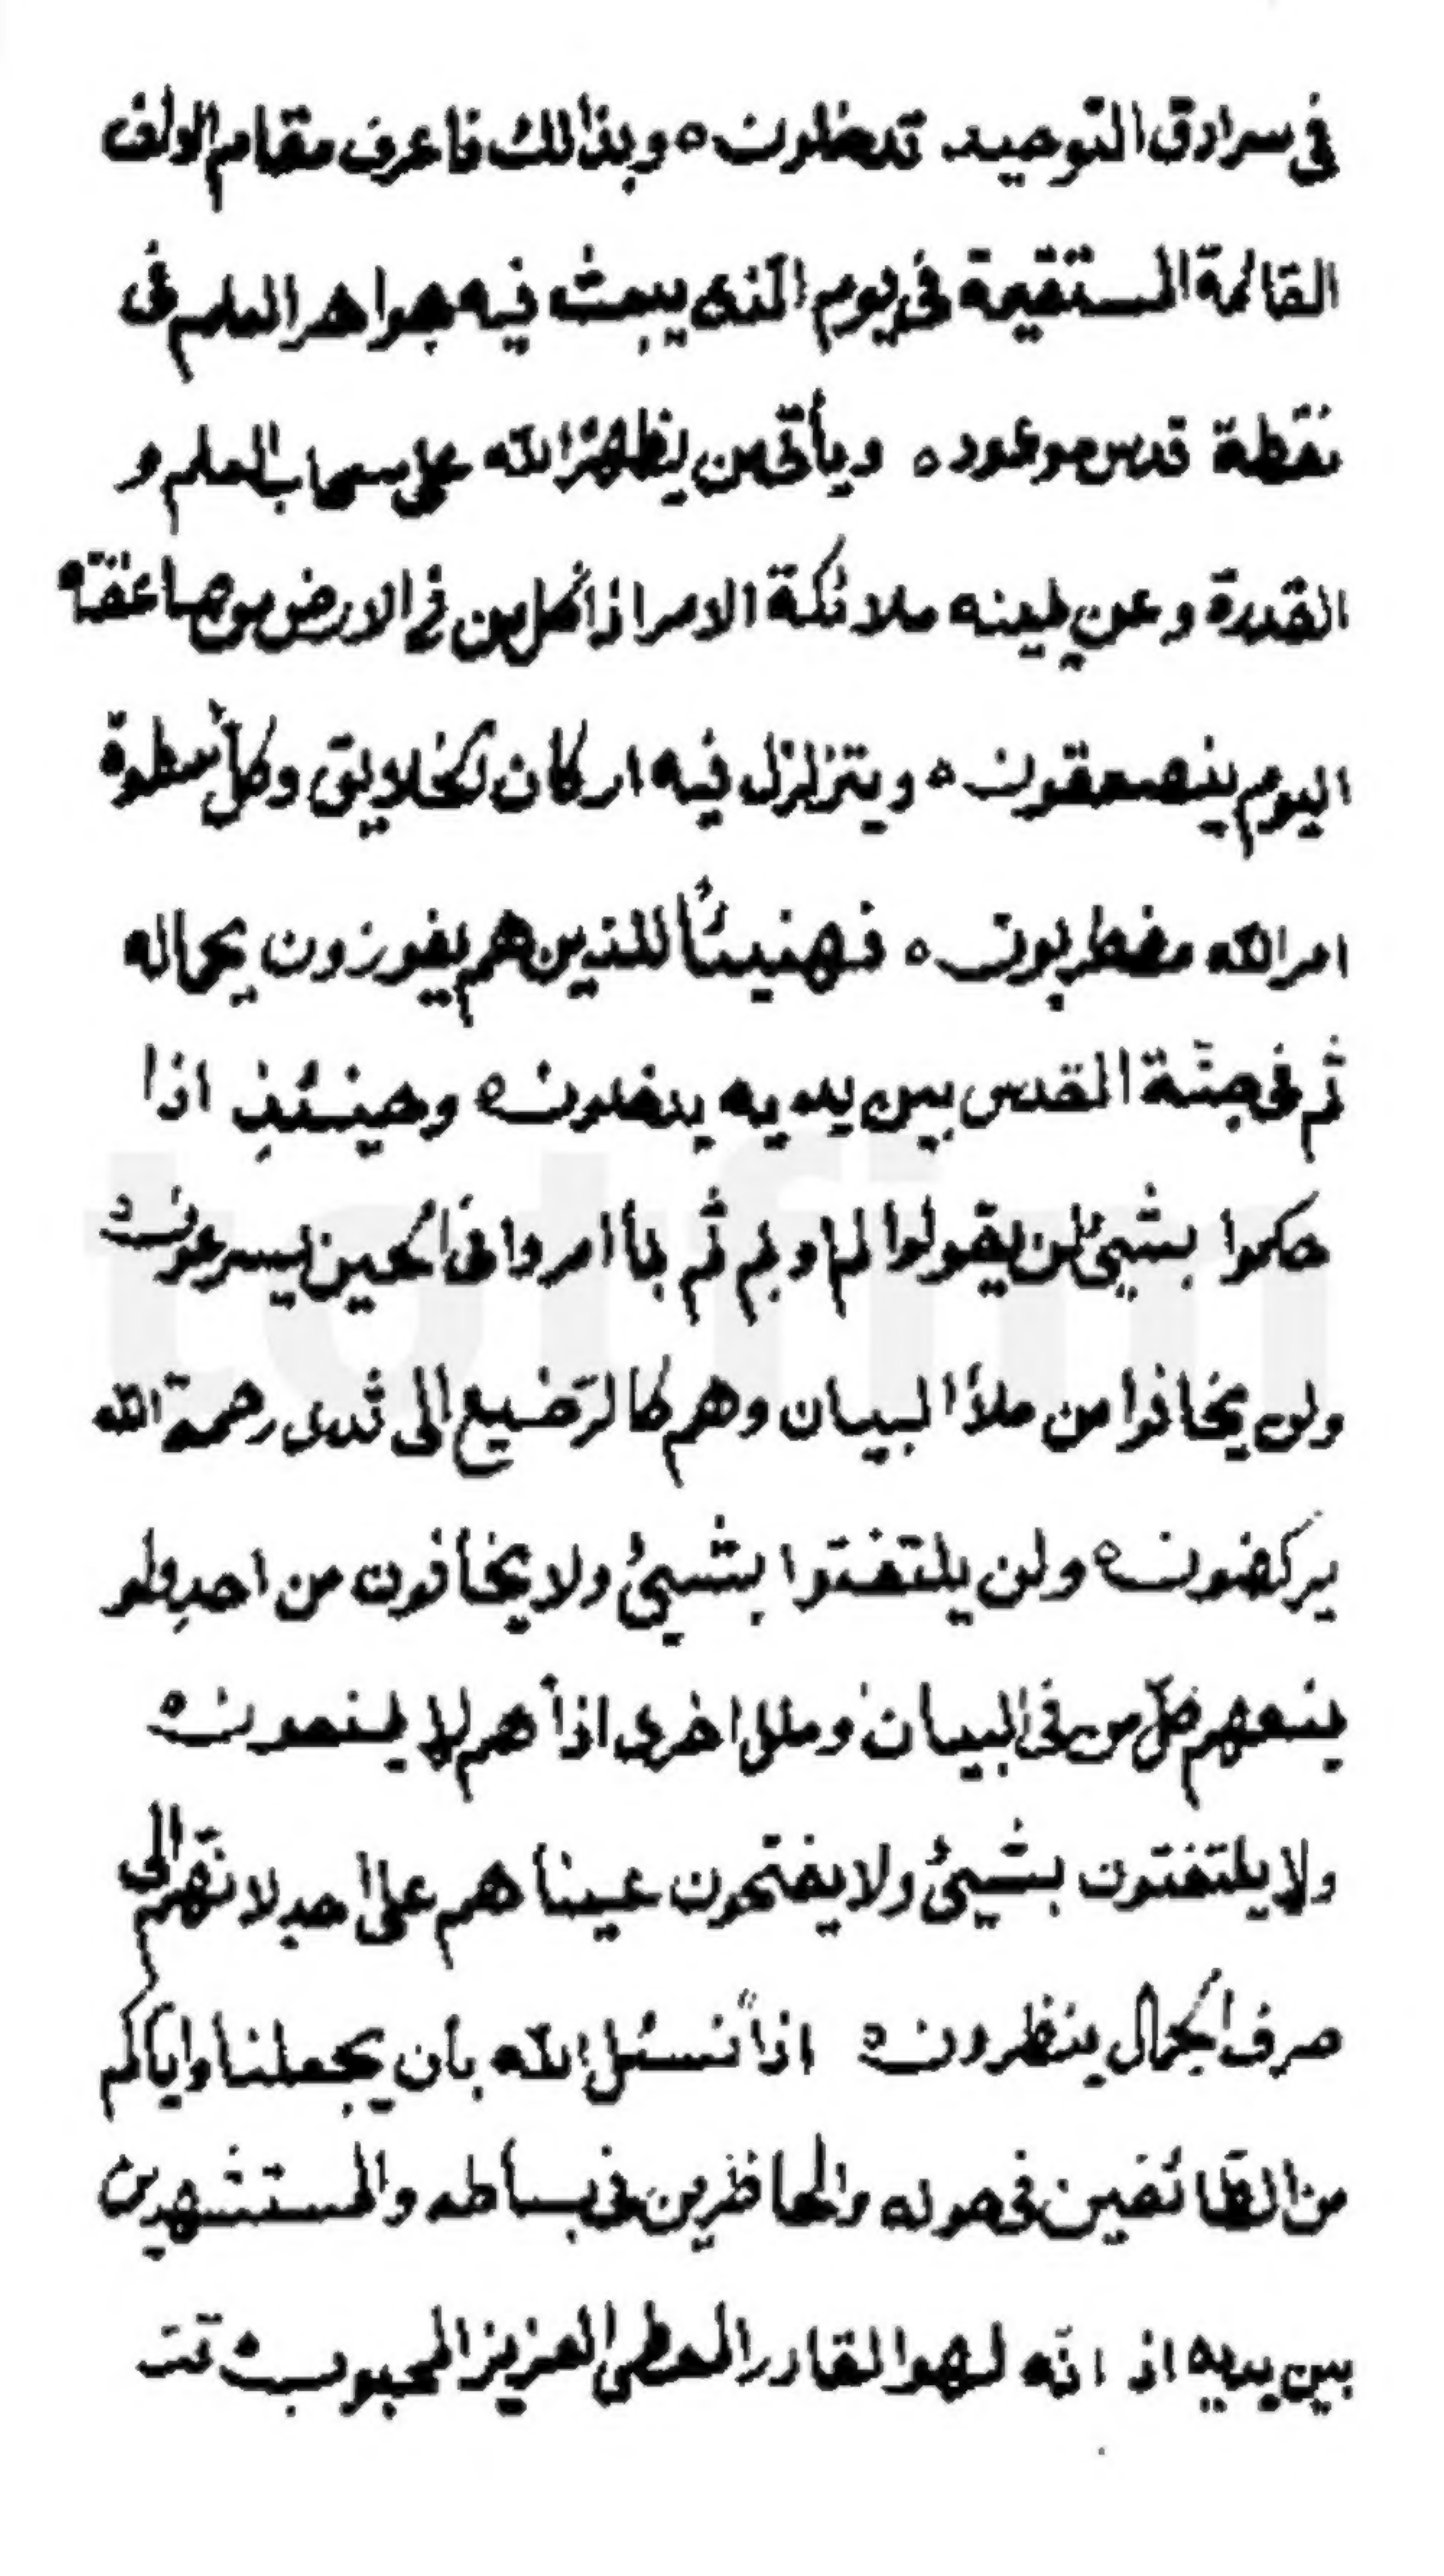 في سرادق التوحيد تدخلون ه وبذالك فاعرف مقام الالف
القائمة المستقيمة في يوم الذى يبعث فيه جواهر العلم في
نقطة قدس موعود ه ويأتى من يظهره الله على سحاب العلم و
القدرة وعن يمينه ملائكة الامر اذا كل من في الارض من صاعقة
اليوم ينصعقون ه ويتزلزل فيه اركان الخلايق وكل من سطوة
امر الله مضطربون ه فهنيئا للذين هم يفوزون بجماله
ثم في جنّة القدس بين يديه يدخلون ه وحينئذ اذا
حكموا بشيئ لن يقولوا لم او بم ثم بما امروا في الحين يسرعون ه
ولن يخافوا من ملأ البيان وهم كالرّضيع الى ثدى رحمة الله
يركضون ه ولن يلتفتوا بشيئ ولا يخافون من احد ولو
يمنعهم كلّ من في البيان وملل اخرى اذا هم لا يمنعون ه
ولا يلتفتون بشيئ ولا يفتحون عيناهم على احد لانّهم الى
صرف الجمال ينظرون ه اذاً نسئل الله بأن يجعلنا واياكم
من الطّائفين في حوله والحاضرين في بساطه والمستشهدين
بين يديه اذ انّه لهو القادر المعطى العزيز المحبوب تمت
totfim